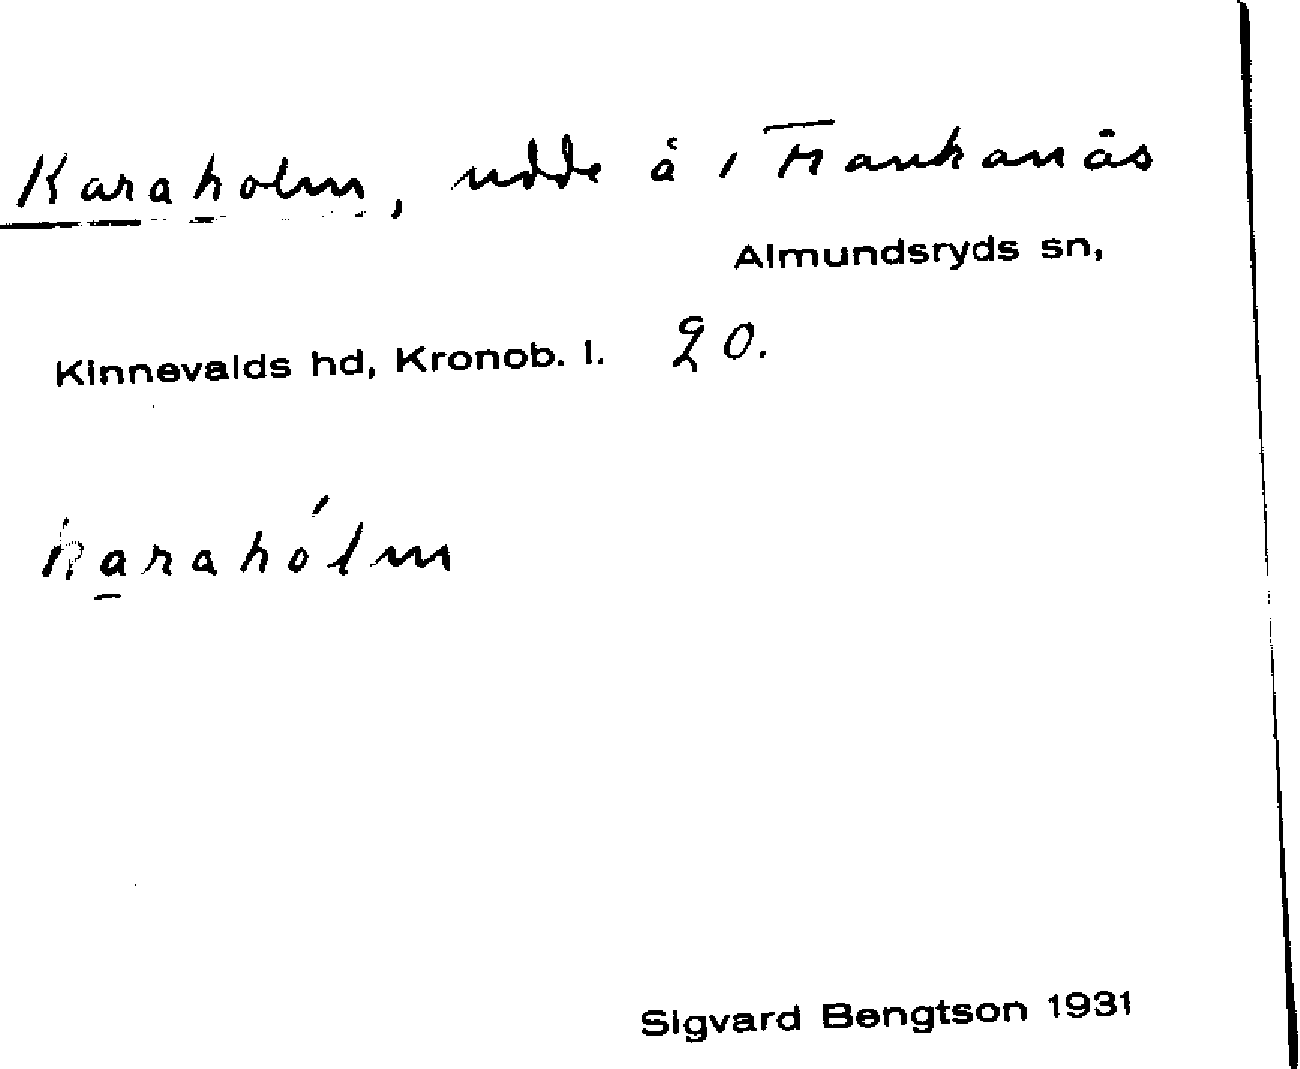 Karaholm, udde å
Almundsryds sn,
Kinnevalds hd, Kronob. l. 20.
karahólm
Sigvard Bengtson 1931